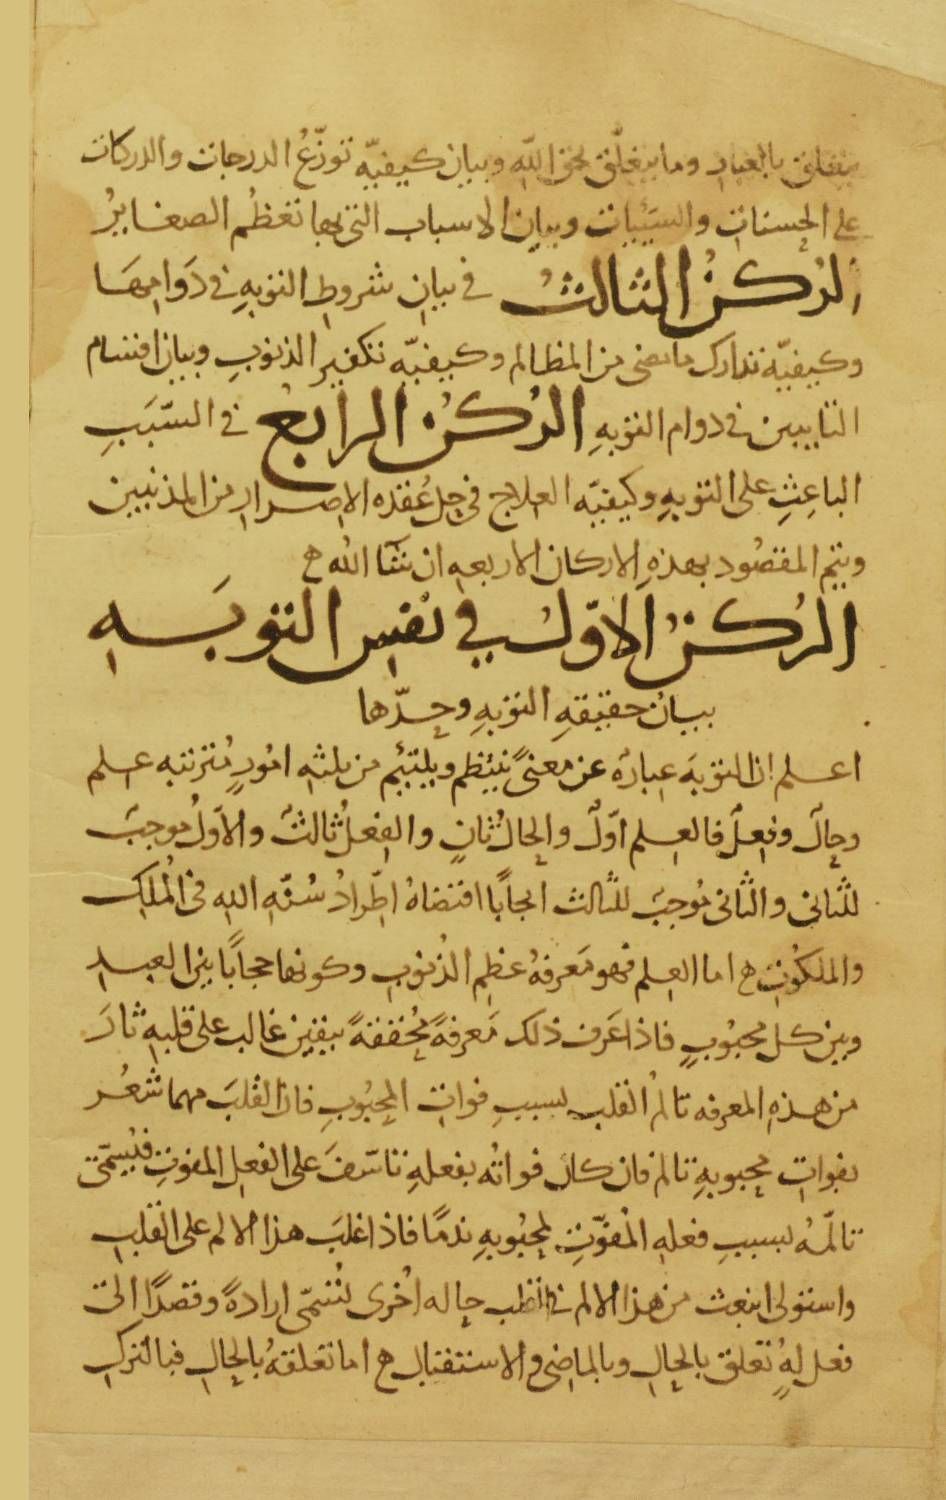 يتعلق بالعباد وما يتعلّق بحق اللّه وبيان كيفيّه توزّعُ الدرجات والدركات
على الحسنات والسيّئات وبيان الاسباب التى بها تعظُم الصغايرُ
الرُكنُ الثالثُ في بيان شروط التوبهِ في دَوامِهَا
وكيفيّه تدارك ما مضى من المظالم وكيفيّه تكفير الذنوبِ وبيان اقسام
التايبين في دوام التوبهِ الرُكنُ الرابعُ في السّبَبِ
الباعِثِ على التوبهِ وكيفيّه العلاج في حِل عُقده الاصرار من المذنبين
ويتم المقصُود بهذهِ الاركان الاربعهِ ان شَآ الله ح
الرُكنُ الاوّلُ في نفسِ التوبَـهِ
بيـانُ حقيقهِ التوبهِ وحدّها
اعلم ان التوبَه عبارةٌ عن معنىً ينتظم ويلتئم من ثلثهِ امُورٍ مُترتبه علم
وحالٌ وفعلٌ فالعلم اوّلٌ والحالُ ثانٍ والفعلُ ثالثٌ والاوّلُ موجبٌ
للثّانى والثّانى مُوجبٌ للثّالث ايجابًا اقتضاهُ اطّرادُ سُنّهِ اللهِ في المُلكِ
والملكُوتِ ح اما العلم فهو مَعرفهُ عظم الذُنوبِ وكونها حجابًا بين العبد
وبين كل محبُوبٍ فاذا عَرف ذلك مَعرفهً مُحققهً بيقين غالب على قلبهِ ثارَ
من هذهِ المعرفه تالمُ القلب بسببِ فواتِ المحبُوبِ فان القلبَ مهما شعُر
بفواتِ محبوبهِ تالم فان كان فواتُه بفعلهِ تاسّفَ على الفعلِ المفوتِ فيُسمّى
تالمّهُ بسببِ فعلهِ المُفوّتِ لمحبُوبهِ ندمًا فاذا غلبَ هذا الالم على القلبِ
واستولى انبعث من هذا الالم في القلب حاله اُخرى تُسمّى ارادةً وقصدًا الى
فعل لهُ تعلق بالحالِ وبالماضى والاستقبال ح اما تعلقهُ بالحالِ فبالتركِ